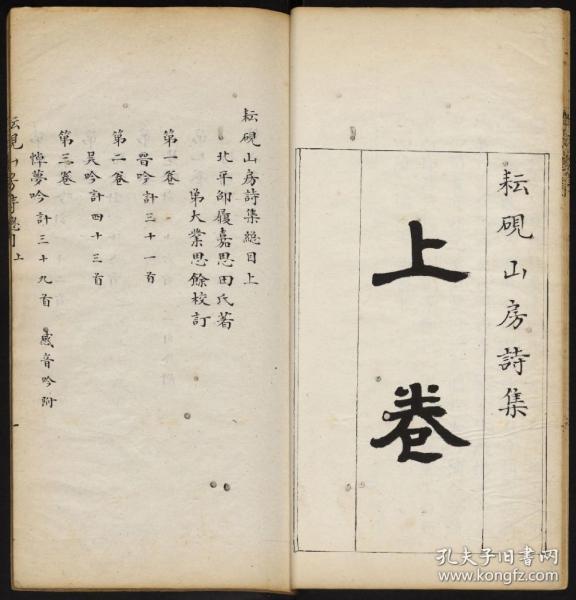 耘硯山房詩集
上卷
耘硯山房詩集總目上
北平邵履嘉思田氏著
弟大業思餘校訂
第一卷
晋吟計三十一首
第二卷
吴吟計四十三首
第三卷
悼夢吟計三十九首 感音吟附
耘硯山房詩總目 上
孔夫子旧书网
www.kongfz.com